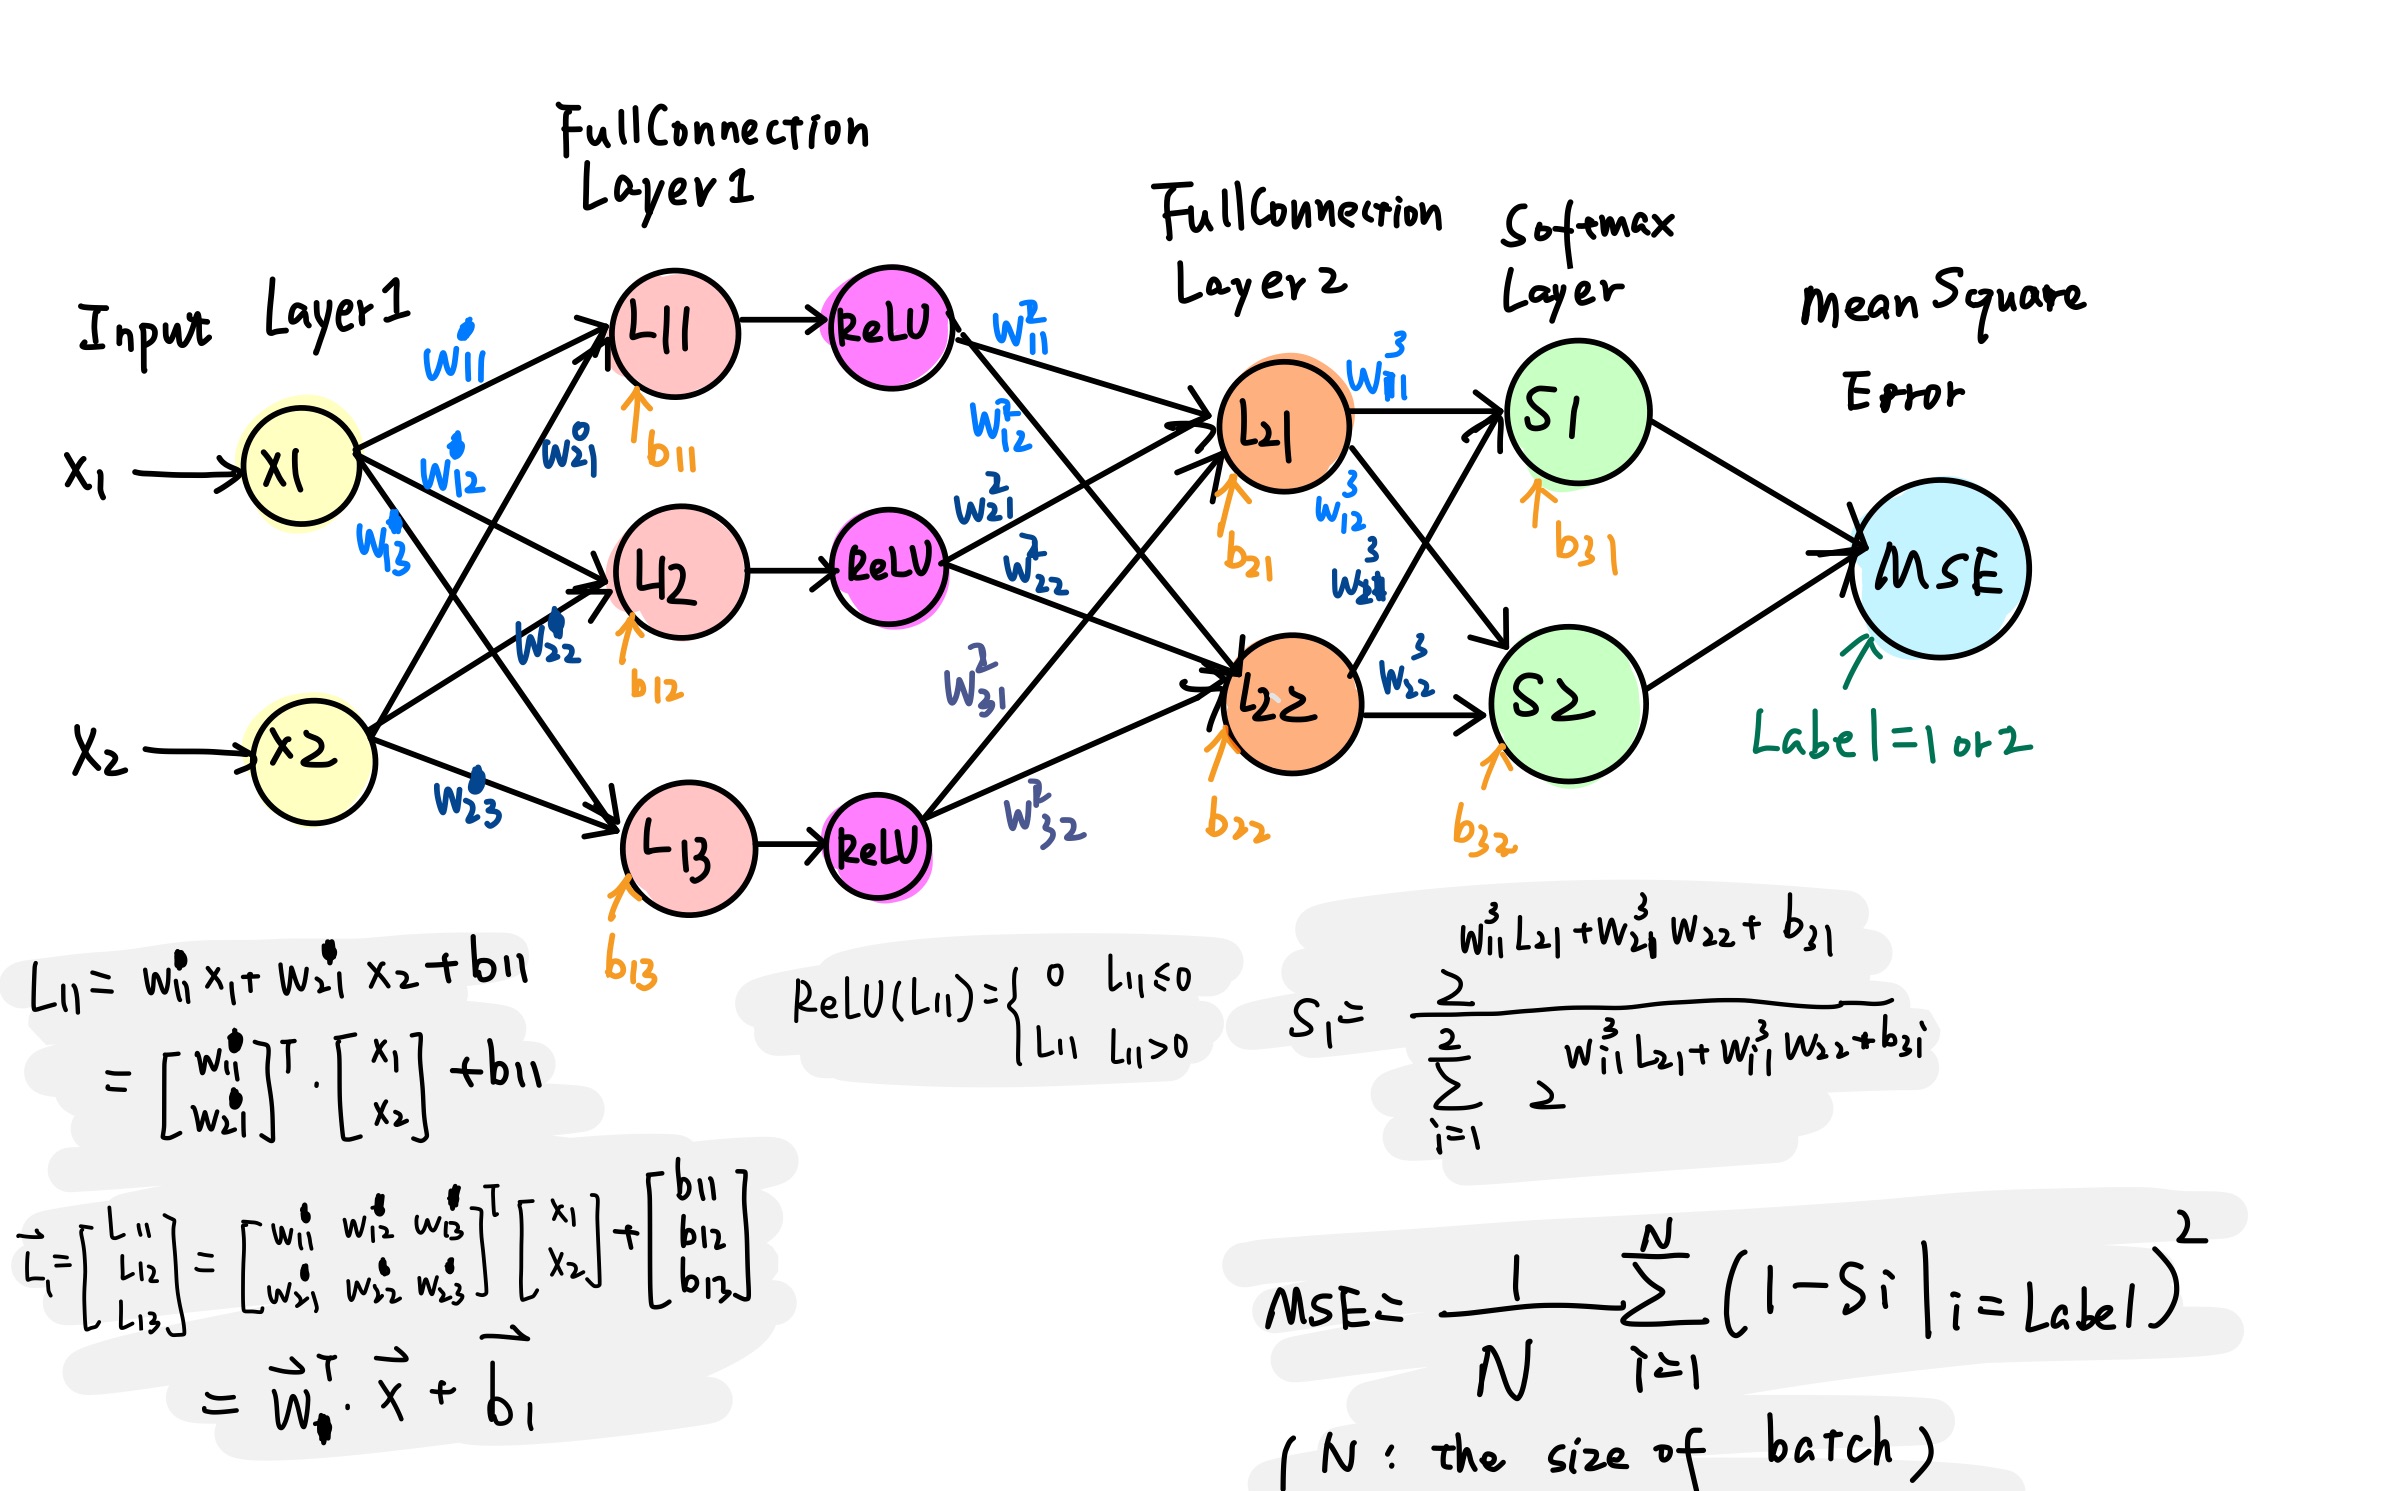 FullConnection
Layer1
FullConnection
Layer2
Softmax
Layer
Mean Square
Error
Input Layer1
x1
X1
x2
X2
w11
w12
w13
w⁰21
w22
w23
L11
b11
L12
b12
L13
b13
ReLU
ReLU
ReLU
w²11
w²12
w²21
w²22
w²31
w²32
L21
b21
L22
b22
w³11
w³12
w³21
w³22
S1
b31
S2
b32
MSE
Label=1 or 2
L11= w11 x1+ w21 x2 +b11
= [w11 w21]ᵀ · [x1 x2] +b11
L1= [L11 L12 L13] = [w11 w12 w13 w21 w22 w23]ᵀ [x1 x2] + [b11 b12 b13]
= wᵀ · x + b1
ReLU(L11)= { 0 L11≤0
L11 L11>0
w³11 L21 +w³21 w22 + b31
S1= 2
2 w³i1 L21 + w³i1 w22 + b3i
∑ 2
i=1
MSE= 1/N ∑ N i=1 (1-Si | i=Label)²
(N: the size of batch)